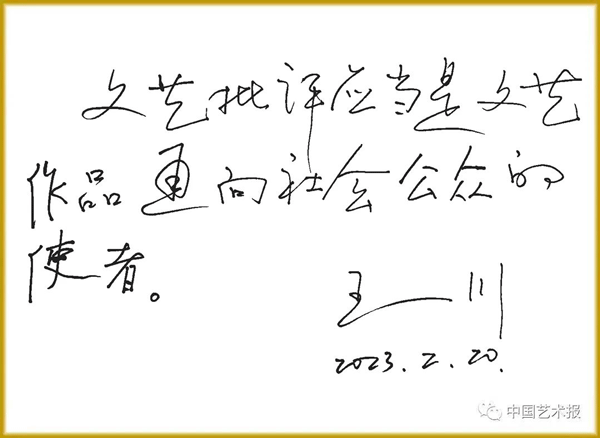 文艺批评应当是文艺
作品通向社会公众的
使者。
王一川
2023.2.20.
中国艺术报